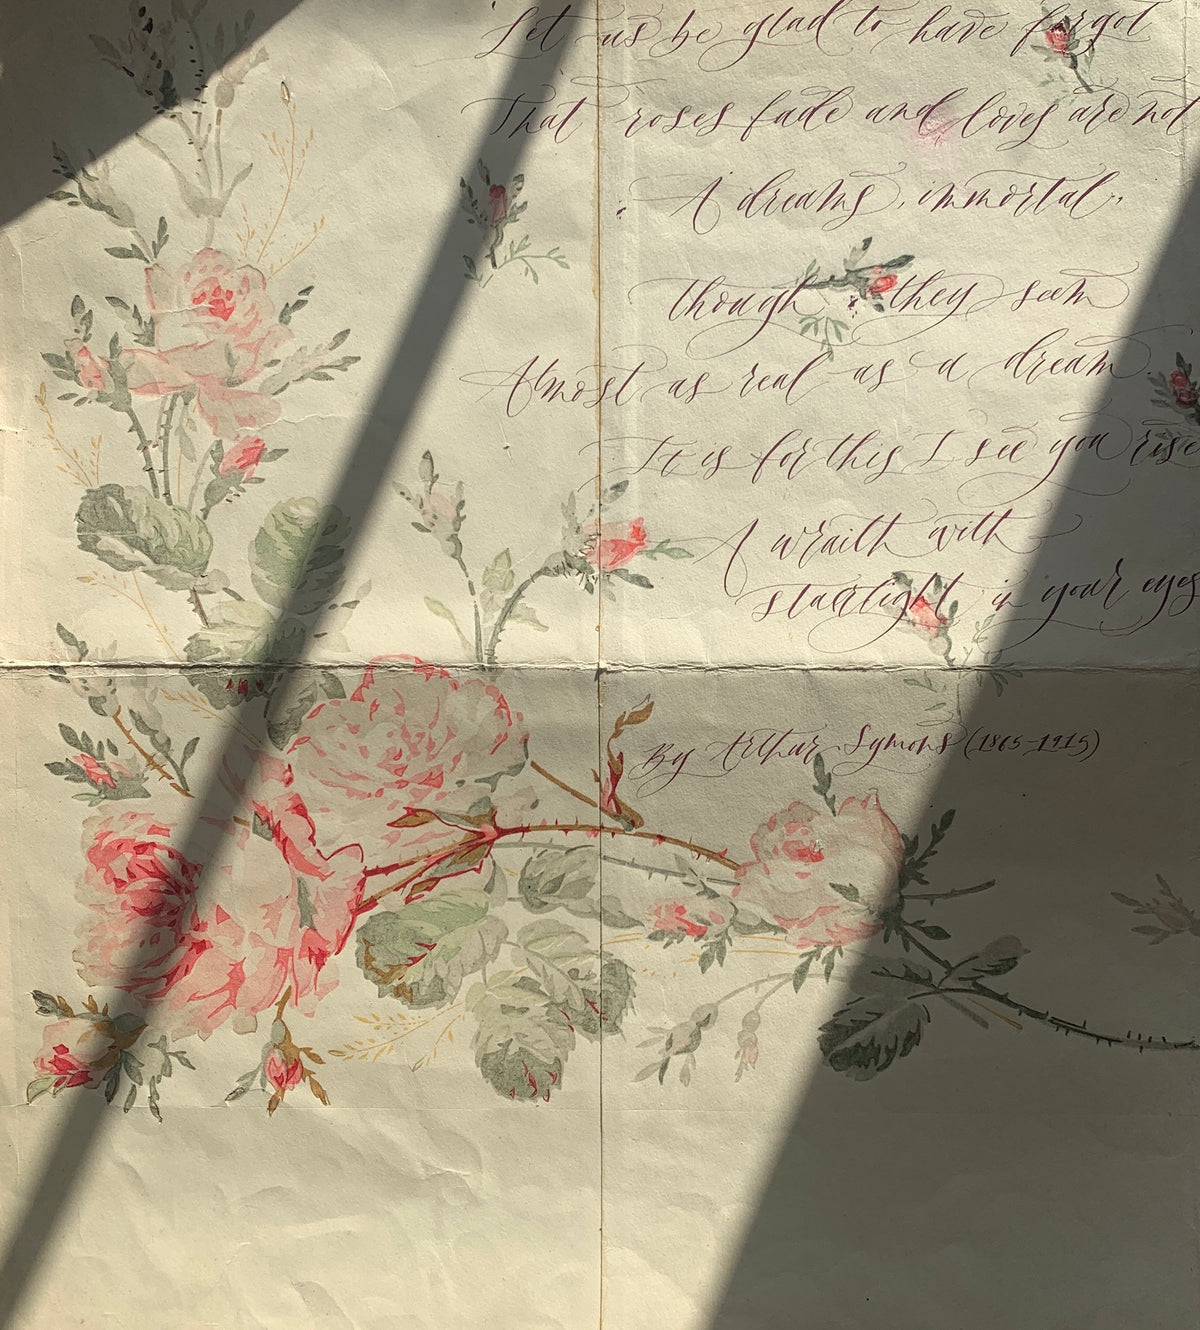 Let us be glad to have forgot
That roses fade and loves are not
A dreams, immortal,
though they seem
Almost as real as a dream.
It is for this I see you rise
A wraith with
starlight in your eyes
By Arthur Symons (1865-1915)